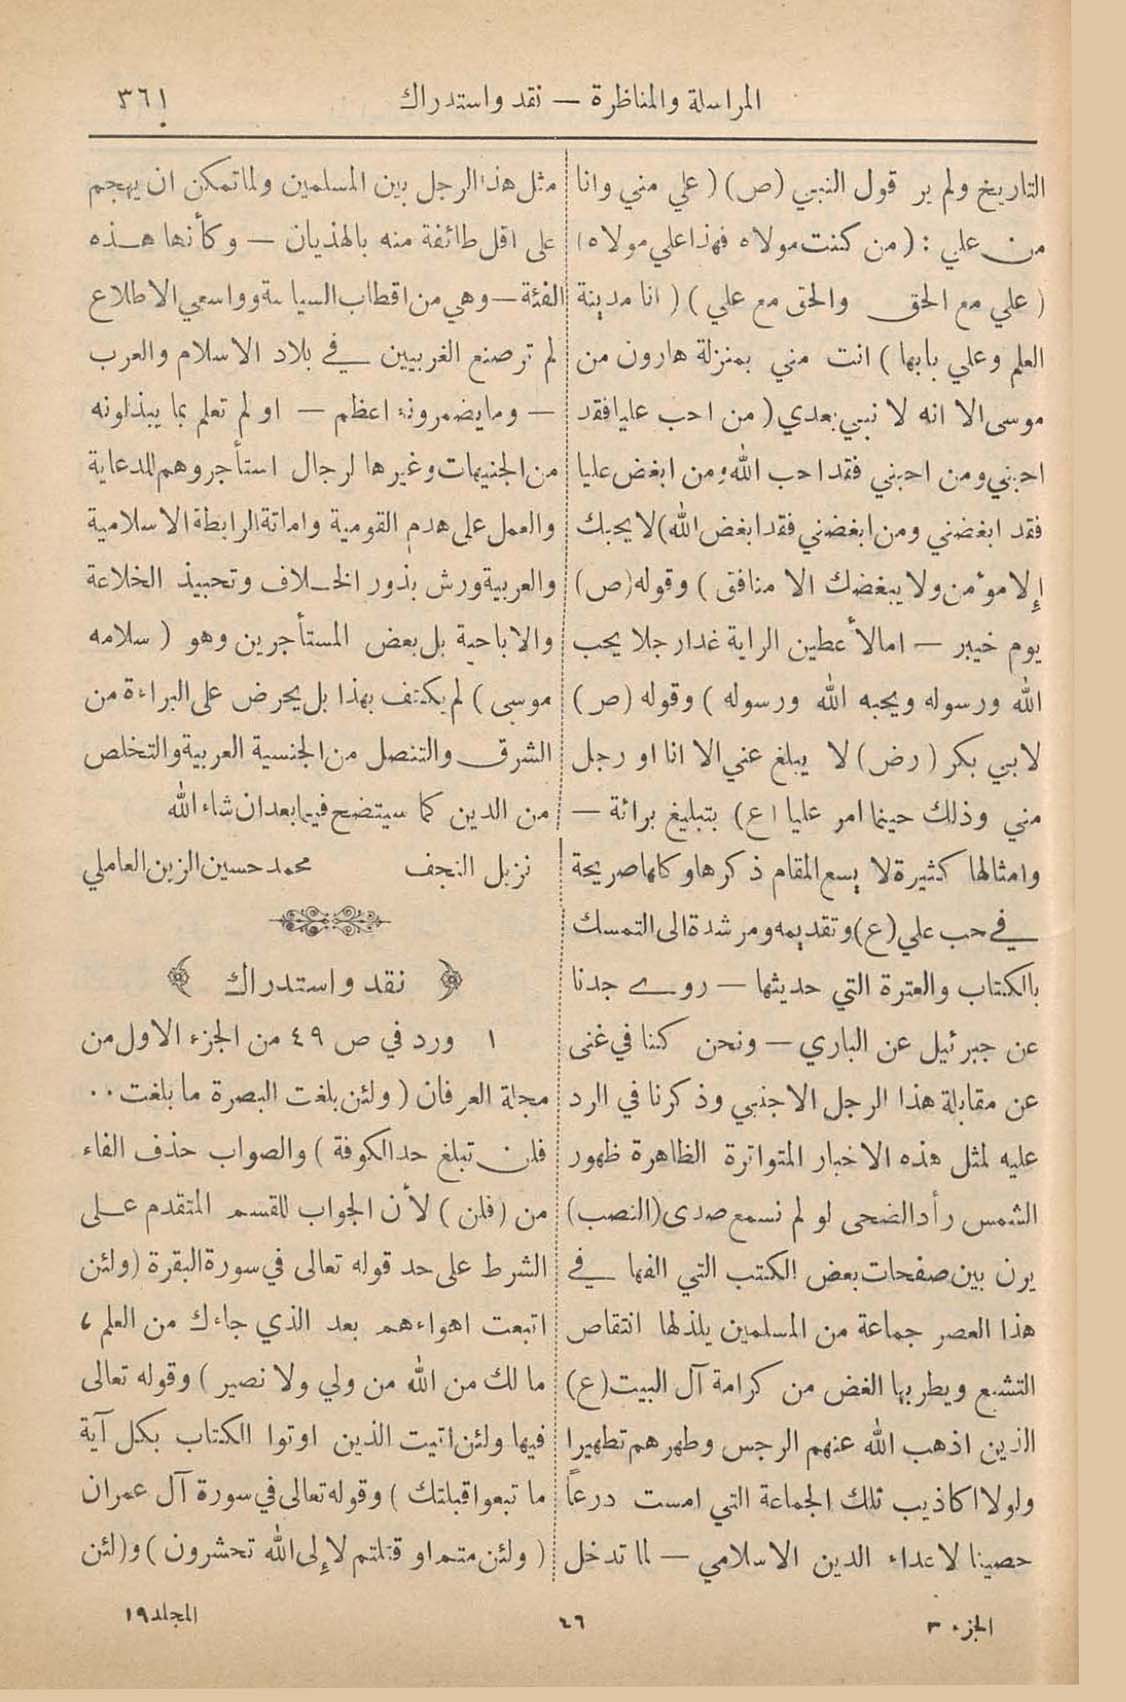 المراسلة والمناظرة — نقد واستدراك
٣٦١
التاريخ ولم ير قول النبي (ص) ( علي مني وانا
من علي : ( من كنت مولاه فهذا علي مولاه )
( علي مع الحق والحق مع علي ) ( انا مدينة
العلم وعلي بابها ) انت مني بمنزلة هارون من
موسى الا انه لا نبي بعدي ( من احب عليا فقد
احبني ومن احبني فقد احب الله ومن ابغض عليا
فقد ابغضني ومن ابغضني فقد ابغض الله) لا يحبك
إلا مؤمن ولا يبغضك الا منافق ) وقوله (ص)
يوم خيبر — اما لأعطين الراية غدا رجلا يحب
الله ورسوله ويحبه الله ورسوله ) وقوله (ص)
لابي بكر ( رض ) لا يبلغ عني الا انا او رجل
مني وذلك حينما امر عليا (ع) بتبليغ برائة —
وامثالها كثيرة لا يسع المقام ذكرها وكلها صريحة
في حب علي (ع) وتقديمه ومرشدة الى التمسك
بالكتاب والعترة التي حديثها — روى جدنا
عن جبرئيل عن الباري — ونحن كنا في غنى
عن مقابلة هذا الرجل الاجنبي وذكرنا في الرد
عليه لمثل هذه الاخبار المتواترة الظاهرة ظهور
الشمس رأد الضحى لو لم نسمع صدى (النصب)
يرن بين صفحات بعض الكتب التي الفها في
هذا العصر جماعة من المسلمين يلذلها انتقاص
التشيع ويطربها الغض من كرامة آل البيت (ع)
الذين اذهب الله عنهم الرجس وطهرهم تطهيرا
ولولا اكاذيب تلك الجماعة التي امست درعاً
حصينا لاعداء الدين الاسلامي — لما تدخل
مثل هذا الرجل بين المسلمين ولما تمكن ان يهجم
على اقل طائفة منه بالهذيان — وكأنها هذه
الفئة — وهي من اقطاب السياسة وواسعي الاطلاع
لم تر صنع الغربيين في بلاد الاسلام والعرب
— وما يضمرونه اعظم — او لم تعلم بما يبذلونه
من الجنيهات وغيرها لرجال استأجروهم للدعاية
والعمل على هدم القومية واماتة الرابطة الاسلامية
والعربية ورش بذور الخلاف وتحبيذ الخلاعة
والاباحية بل بعض المستأجرين وهو ( سلامه
موسى ) لم يكتف بهذا بل يحرض على البراءة من
الشرق والتنصل من الجنسية العربية والتخلص
من الدين كما سيتضح فيما بعد ان شاء الله
نزيل النجف محمد حسين الزين العاملي
نقد واستدراك
١ ورد في ص ٤٩ من الجزء الاول من
مجلة العرفان ( ولئن بلغت البصرة ما بلغت . .
فلن تبلغ حد الكوفة ) والصواب حذف الفاء
من ( فلن ) لأن الجواب للقسم المتقدم على
الشرط على حد قوله تعالى في سورة البقرة (ولئن
اتبعت اهواءهم بعد الذي جاءك من العلم ،
ما لك من الله من ولي ولا نصير ) وقوله تعالى
فيها ولئن اتيت الذين اوتوا الكتاب بكل آية
ما تبعوا قبلتك ) وقوله تعالى في سورة آل عمران
( ولئن متم او قتلتم لإلى الله تحشرون ) و (لئن
الجزء ٣
٤٦
المجلد ١٩